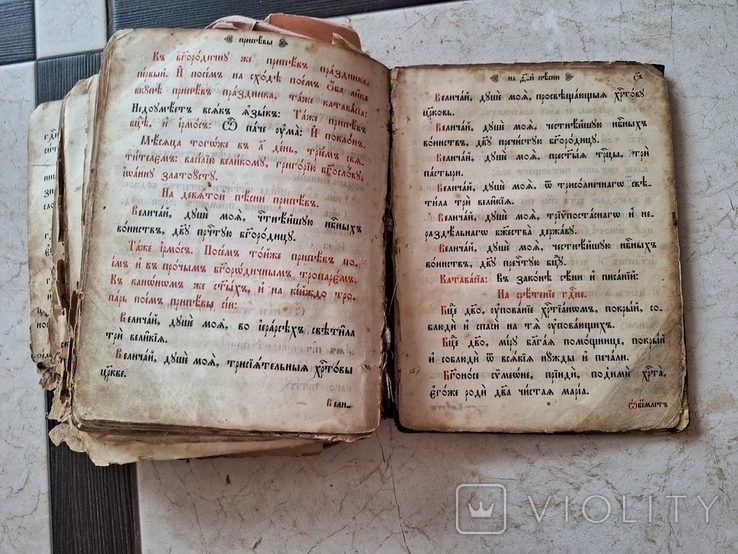 припѣвы
Къ бг҃оро́дичну же припѣ́въ пра́здника,
пе́рвый. И҆ пое́мъ на схо́дѣ пое́мъ ѻ҆́ба ли́ка
вкꙋ́пѣ припѣ́въ пра́здника, та́же катава́сїа:
Недоꙋмѣ́етъ всѧ́къ ѧ҆зы́къ: Та́же припѣ́въ
бц҃ѣ, и҆ і҆рмо́съ: Ѽ па́че ᲂу҆ма̀: И҆ покло́нъ.
Мѣ́сѧца тогѡ́же въ л҃ де́нь, трїе́мъ свѧ-
ти́телємъ: васі́лїю вели́комꙋ, григо́рїю бг҃осло́вꙋ,
і҆ѡа́ннꙋ златоꙋ́стꙋ.
На девѧ́той пѣ́сни припѣ́въ.
Велича́й, дꙋшѐ моѧ̀, чⷭ҇тнѣ́йшꙋю нбⷭ҇ныхъ
во́инствъ, дв҃ꙋ пречⷭ҇тꙋю бг҃оро́дицꙋ.
Та́же і҆рмо́съ. Пое́мъ то́йже припѣ́въ по-
е́мъ и҆ въ про́чымъ бг҃оро́дичнымъ тропарє́мъ.
Въ канѡ́нѡмъ же ст҃ы́хъ, и҆ на кі́йждо тро-
па́рь пое́мъ припѣ́вы сїѧ̑:
Велича́й, дꙋшѐ моѧ̀, во і҆єра́рсѣхъ свѣти̑ла
трѝ вели̑кїѧ.
Велича́й, дꙋшѐ моѧ̀, трисїѧ́тельныѧ хрⷭ҇то́вы
цр҃кве.
Вели-
на ѳ҃-й пѣ́сни
Велича́й, дꙋшѐ моѧ̀, просвѣща́ющыѧ хрⷭ҇то́вꙋ
цр҃ковь.
Велича́й, дꙋшѐ моѧ̀, честнѣ́йшꙋю нбⷭ҇ныхъ
во́инствъ, дв҃ꙋ пречи́стꙋю бг҃оро́дицꙋ.
Велича́й, дꙋшѐ моѧ̀, прест҃ы́ѧ трⷪ҇цы, трѝ
па́стыри.
Велича́й, дꙋшѐ моѧ̀, ѿ трисо́лнечнагѡ свѣ-
ти̑ла трѝ вели̑кїѧ.
Велича́й, дꙋшѐ моѧ̀, трїѵпоста́снагѡ и҆ не-
раздѣ́льнагѡ бж҃ества̀ держа́вꙋ.
Велича́й, дꙋшѐ моѧ̀, честнѣ́йшꙋю нбⷭ҇ныхъ
во́инствъ, дв҃ꙋ пречⷭ҇тꙋю бц҃ꙋ.
Катава́сїа: Въ зако́нѣ сѣ́ни и҆ писа́нїй:
На срѣ́тенїе гдⷭ҇не.
Бц҃е дв҃о, ᲂу҆пова́нїе хрⷭ҇тїа́нѡмъ, покры́й, со-
блюдѝ и҆ спасѝ на тѧ̀ ᲂу҆пова́ющихъ.
Бц҃е дв҃о, мі́рꙋ блага́ѧ помо́щнице, покры́й
и҆ соблюдѝ ѿ всѧ́кїѧ нꙋ́жды и҆ печа́ли.
Бг҃оно́се сѷмеѡ́не, прїидѝ, подимѝ хрⷭ҇та̀,
є҆го́же родѝ дв҃а чи́стаѧ марі́а.
Ѡ҆бе́млетъ
VIOLITY